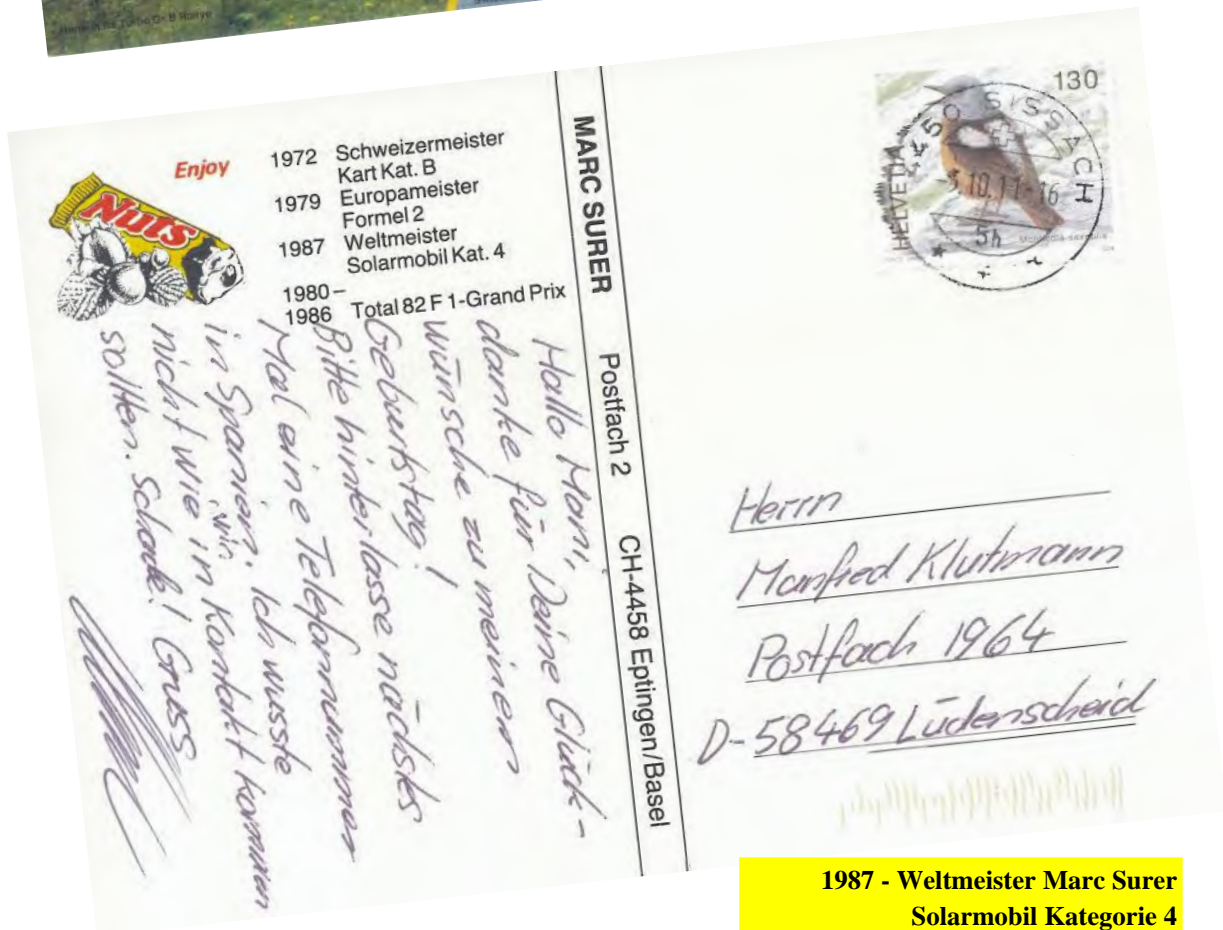 Enjoy
Nuts
1972 Schweizermeister
Kart Kat. B
1979 Europameister
Formel 2
1987 Weltmeister
Solarmobil Kat. 4
1980–
1986 Total 82 F 1-Grand Prix
MARC SURER Postfach 2 CH-4458 Eptingen/Basel
Hallo Mani,
danke für Deine Glück-
wünsche zu meinem
Geburtstag!
Bitte hinterlasse nächstes
Mal eine Telefonnummer
in Spanien. Ich wusste
nicht wie wir in Kontakt kommen
sollten. Schade! Gruss
130
HELVETIA
4450 SISSACH
-3.10.11-16
5h
Monticola saxatilis
Herrn
Manfred Klutmann
Postfach 1964
D-58469 Lüdenscheid
1987 - Weltmeister Marc Surer
Solarmobil Kategorie 4